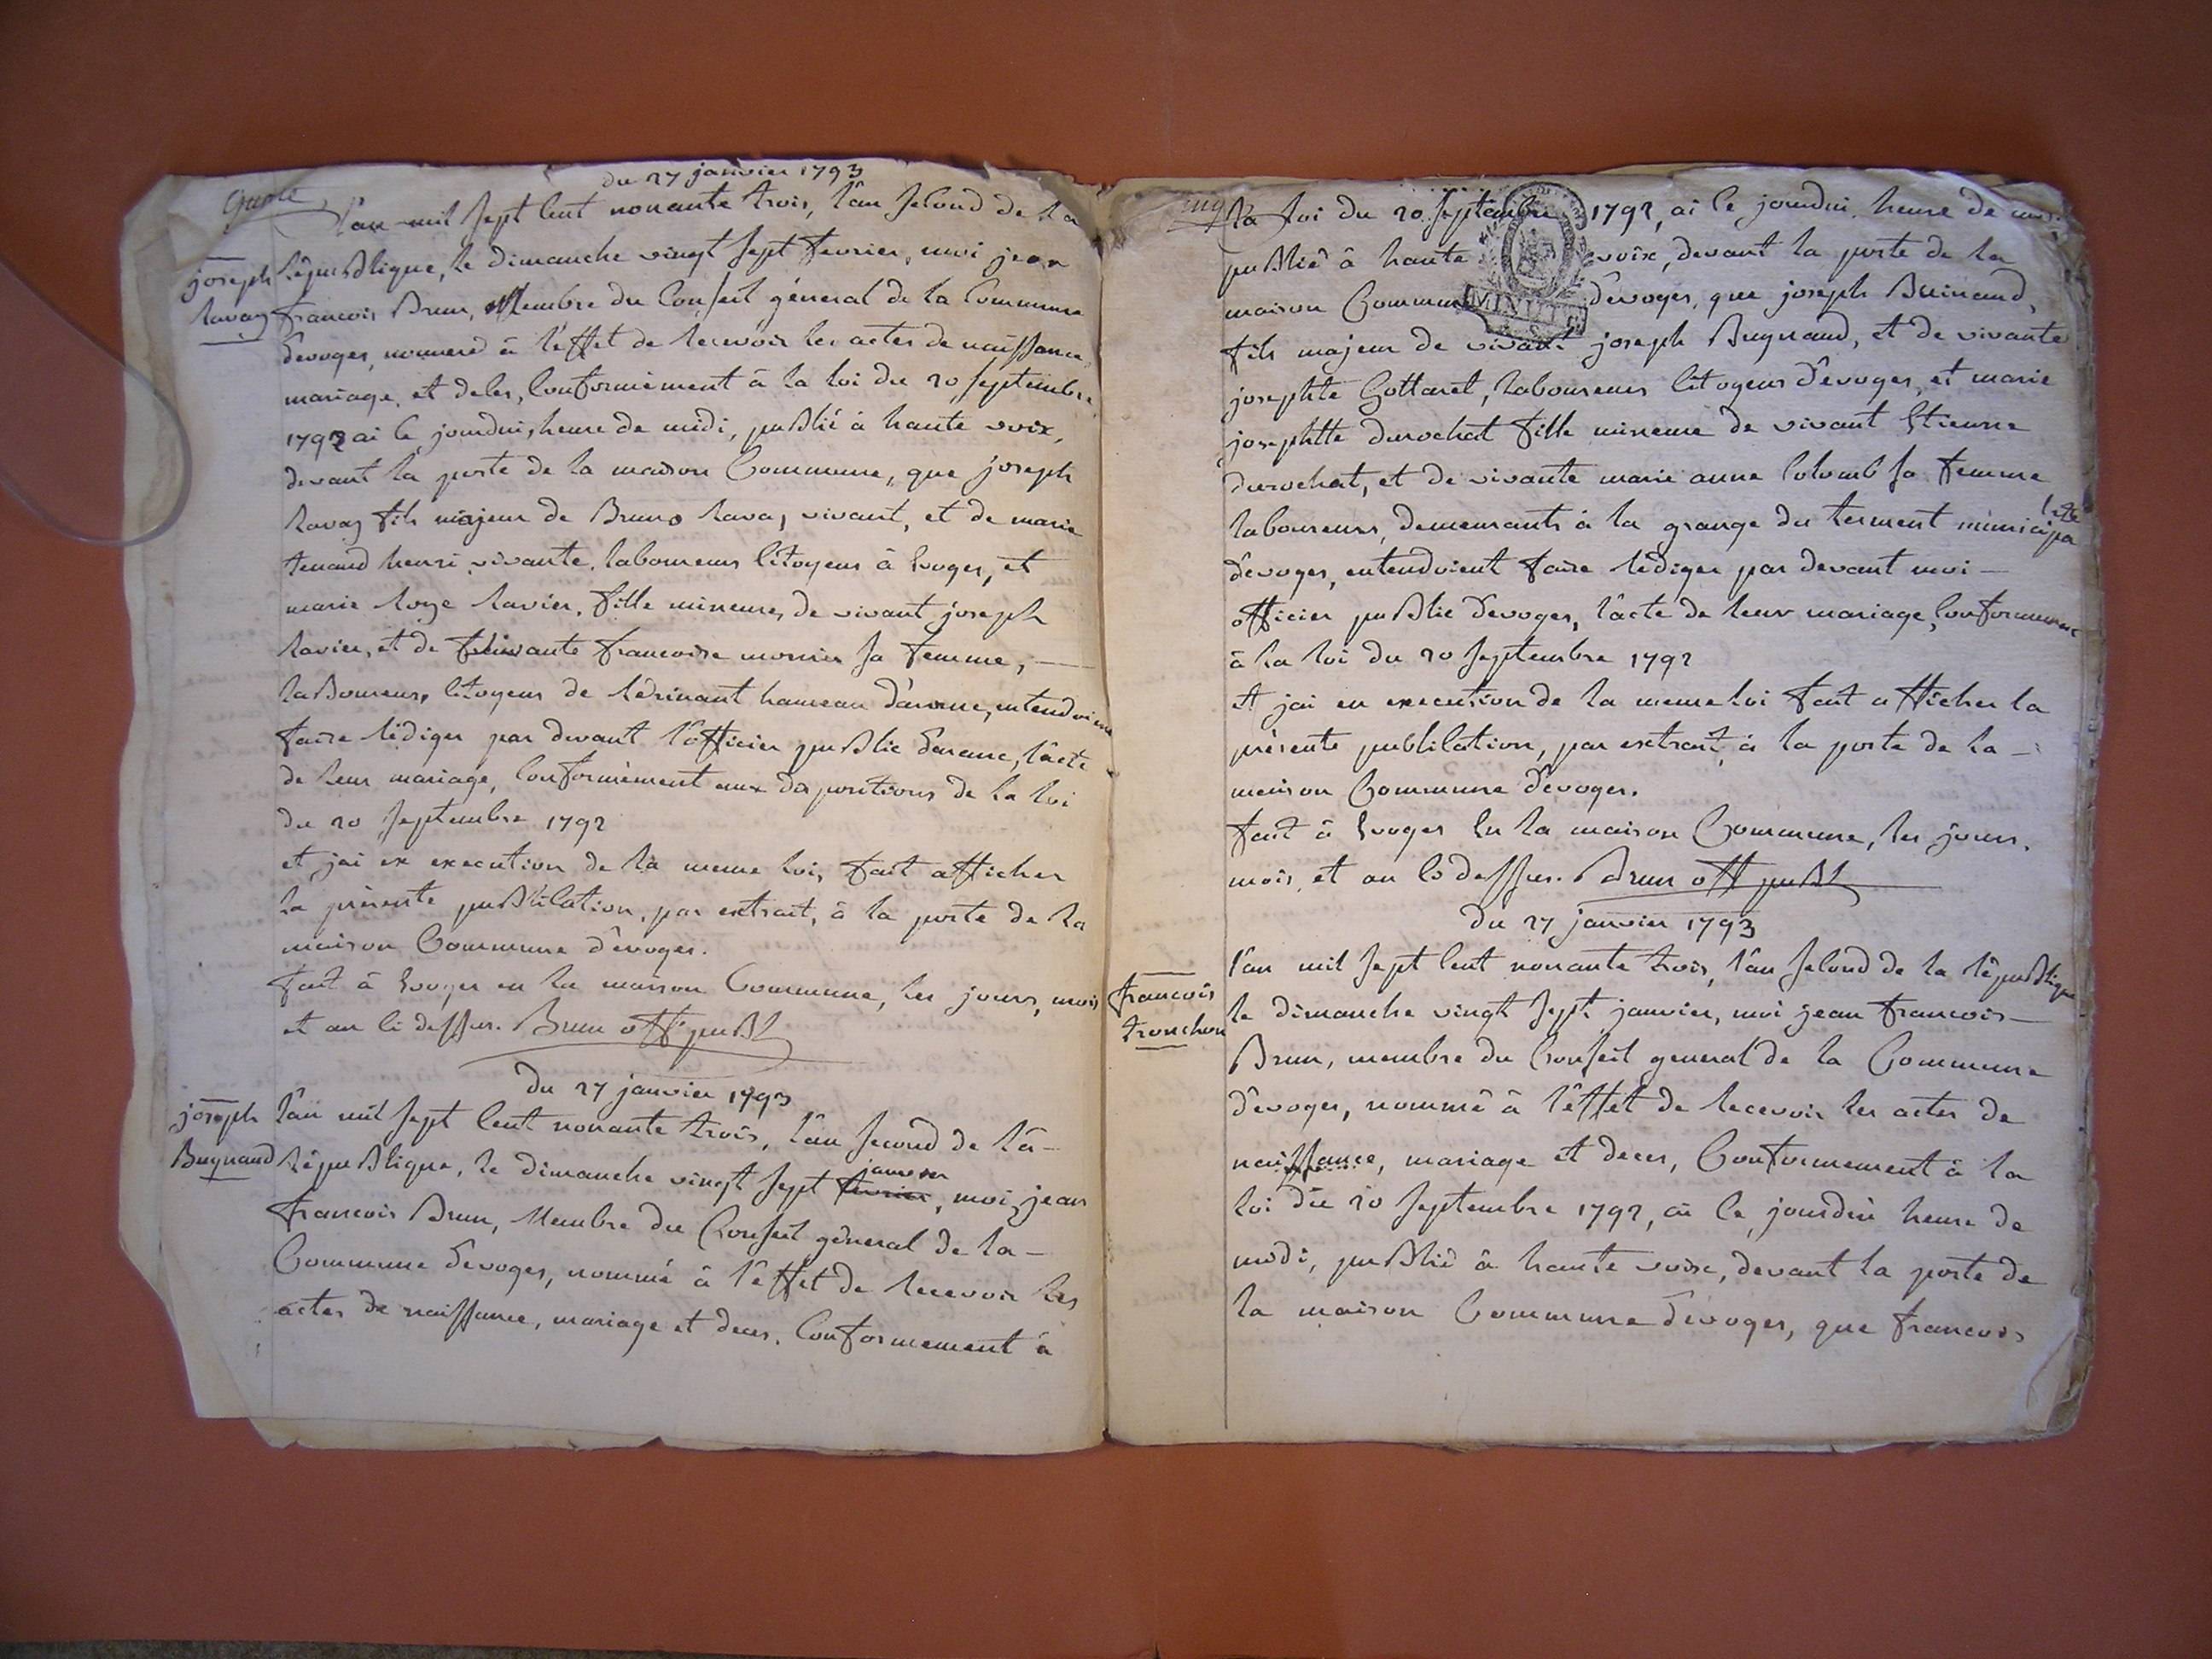 du 27 janvier 1793
l'an mil sept cent nonante trois, l'an second de la
joseph
ravaz
république, le dimanche vingt sept fevrier, moi jean
francois Brun, Membre du Conseil géneral de la Commune
d'evoges, nommé à l'effet de recevoir les actes de naissance,
mariage, et deces, Conformément à la loi du 20 septembre
1792 ai ce jourdui, heure de midi, publié à haute voix,
devant la porte de la maison Commune, que joseph
ravaz fils majeur de Bruno rava, vivant, et de marie
tenand henri vivante, laboureurs citoyens à Evoges, et
marie roze ravier, fille mineure, de vivant joseph
ravier, et de vivante francoise monier sa femme,
laboureurs, citoyens de resinant hameau d'arane, entendoient
faire rédiger par devant l'officier public d'arane, l'acte
de leur mariage, Conformément aux dispositions de la loi
du 20 septembre 1792
et jai en execution de la meme loi, fait afficher
la présente publication, par extrait, à la porte de la
maison Commune d'evoges.
fait à Evoges en la maison Commune, les jours, mois
et an ci dessus. Brun off publ
du 27 janvier 1793
joseph
Bugnand
l'an mil sept cent nonante trois, l'an second de la
république, le dimanche vingt sept fevrier janvier, moi jean
francois Brun, Membre du Conseil géneral de la
Commune d'evoges, nommé à l'effet de recevoir les
actes de naissance, mariage et deces, Conformement à
la loi du 20 septembre 1792, ai ce jourdui heure de midi
publié à haute voix, devant la porte de la
maison Commune d'evoges, que joseph Buinand,
MINUTE
fils majeur de vivant joseph Bugnand, et de vivante
josephte Gottaret, laboureurs citoyens d'evoges, et marie
josephtte durochat fille mineure de vivant Etienne
durochat, et de vivante marie anne Colomb sa femme
laboureurs, demeurants à la grange du terment municipalité
d'evoges, entendoient faire rédiger par devant moi
officier public d'evoges, l'acte de leur mariage, Conformement
à la loi du 20 septembre 1792
et jai en execution de la meme loi fait afficher la
présente publication, par extrait, à la porte de la
maison Commune d'evoges.
fait à Evoges En la maison Commune, les jours,
mois, et an ci dessus. Brun off publ
du 27 janvier 1793
francois
tronchon
l'an mil sept cent nonante trois, l'an second de la république
le dimanche vingt sept janvier, moi jean francois
Brun, membre du Conseil general de la Commune
d'evoges, nommé à l'effet de recevoir les actes de
naissance, mariage et deces, Conformement à la
loi du 20 septembre 1792, ai ce jourdui heure de
midi, publié à haute voix, devant la porte de
la maison Commune d'evoges, que francois